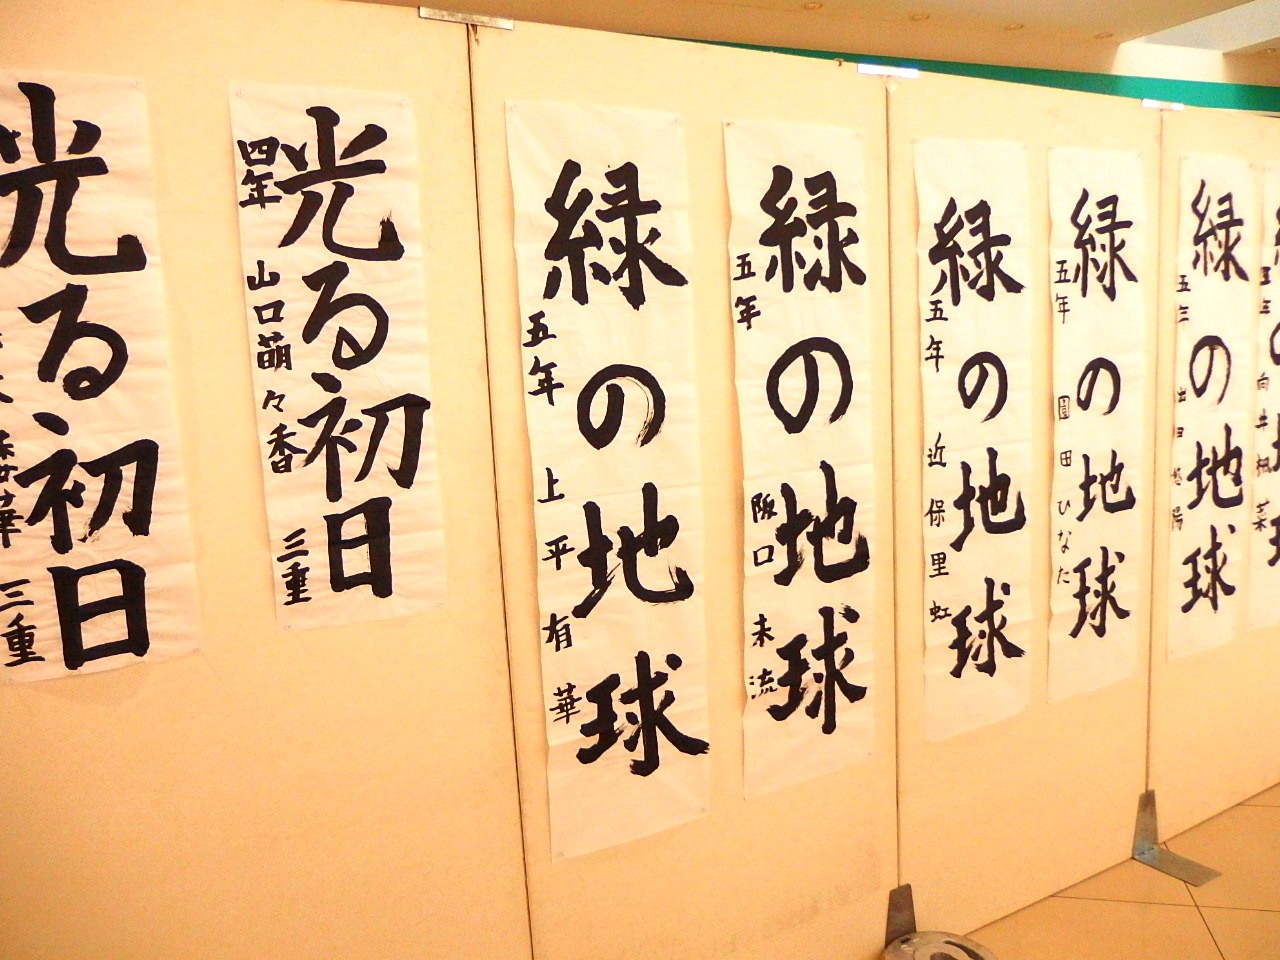 光る初日
三重
光る初日
四年 山口萌々香 三重
緑の地球
五年 上平有華
緑の地球
五年 阪口未流
緑の地球
五年 近保里虹
緑の地球
五年 園田ひなた
緑の地球